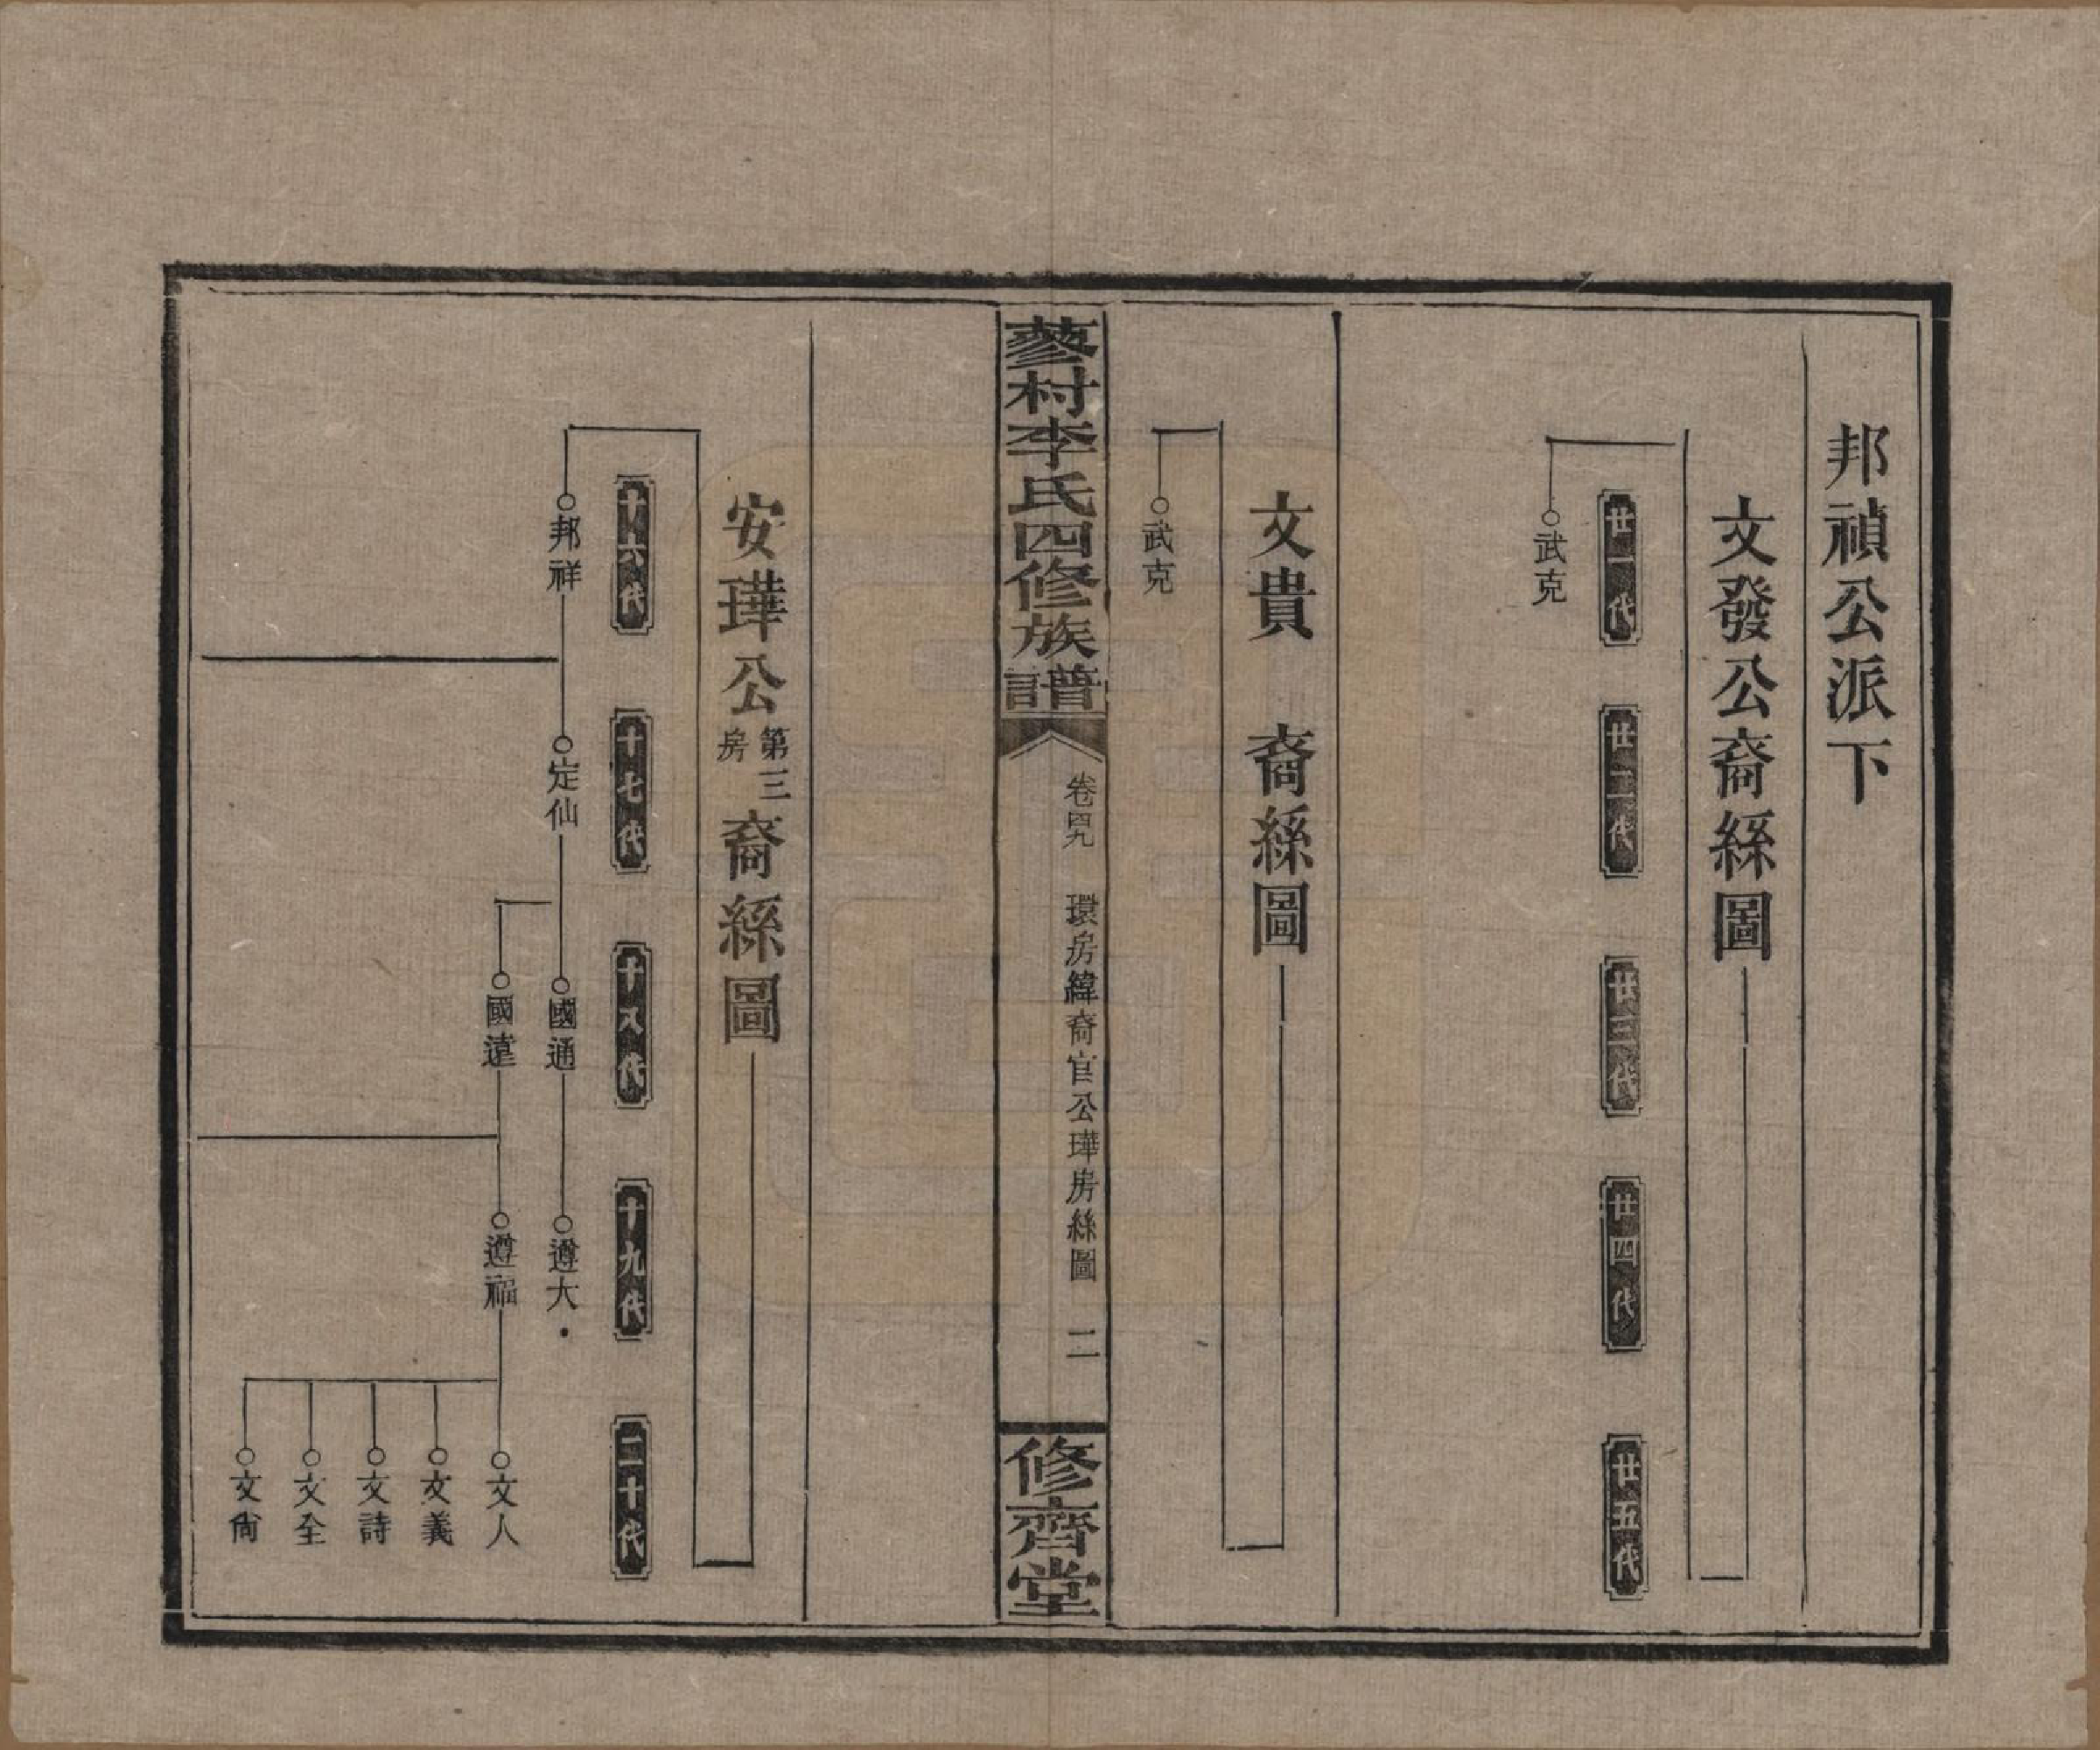 邦禎公派下
文發公裔絲圖
廿一代
廿二代
廿三代
廿四代
廿五代
武克
文貴 裔絲圖
武克
蓼村李氏四修族譜
卷四九 環房緯裔官公瑋房絲圖 二
修齊堂
安瑋公第三房裔絲圖
十六代
十七代
十八代
十九代
二十代
邦祥
定仙
國通
遵大
國遠
遵福
文人
文義
文詩
文全
文尚